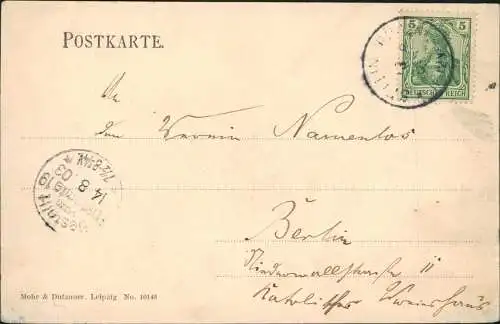 POSTKARTE.
5 5
DEUTSCHES REICH
An
den Verein Namenlos
7½-8½N.
14 8 03
Berlin
Niederwallstrasse 11
Katholisches Vereinshaus
Mohr & Dutzauer, Leipzig No. 10140